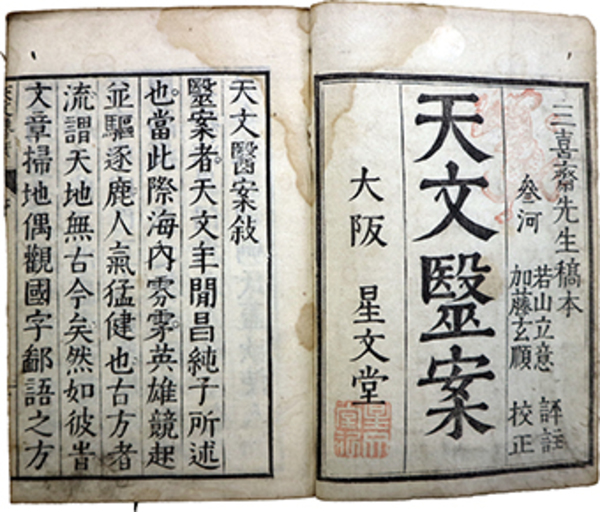 三喜齋先生稿本
叅河
若山立意 評註
加藤玄順 校正
天文毉案
大阪 星文堂
天文醫案敘
毉案者天文年間昌純子所述
也當此際海内雰雺英雄競起
並驅逐鹿人氣猛健也古方者
流謂天地無古今矣然如彼
文章掃地偶觀國字鄙語之方